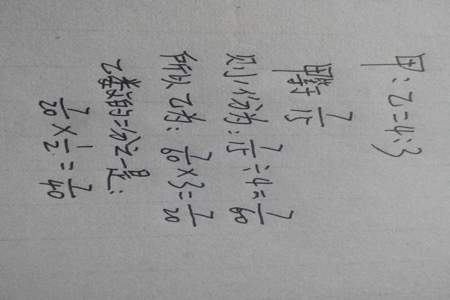 甲:乙=4:3
7/15
则1份为:7/15÷4=7/60
所以乙为:7/60×3=7/20
乙数的二分之一是:
7/20×1/2=7/40